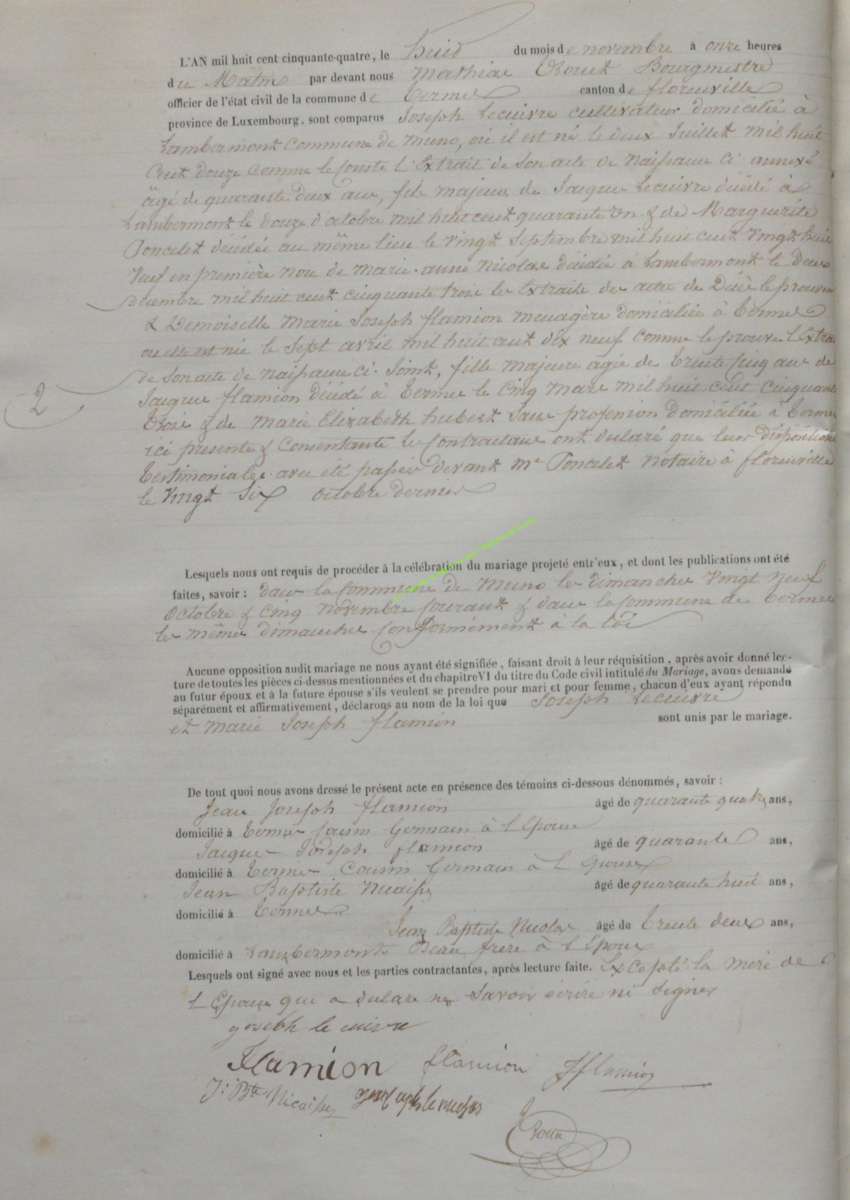 L'AN mil huit cent cinquante-quatre, le huit du mois de novembre à onze heures
du Matin par devant nous Mathias Bourgmestre
officier de l'état civil de la commune de Termes canton de florenville
province de Luxembourg, sont comparus Joseph Lecuivre cultivateur domicilié à
Lambermont Commune de Muno, où il est né le deux Juillet mil huit
Cent douze comme le l'Extrait de son acte de Naissance ci annexé
âgé de quarante deux ans, fils majeur de Jacque Lecuivre décédé à
Lambermont le douze d'octobre mil huit cent quarante un & de Marguerite
Poncelet décédée au même lieu le vingt Septembre mil huit cent vingt huit
Veuf en première noce de Marie anne Nicolas décédée à Lambermont le deux
décembre mil huit cent cinquante trois les Extraits de acte de Décès le prouve
& Demoiselle Marie Joseph flamion menagère domiciliée à Termes
ou elle est née le Sept avril mil huit cent dix neuf comme le prouve L'Extrait
de Son acte de naissance ci Joint, fille majeure âgée de trente cinq ans de
Jacque flamion décédé à Termes le Cinq Mars mil huit cent cinquante
trois & de Marie Elizabeth hubert Sans profession Domiciliée à Termes
ici presente & Consentante les Contractans ont déclaré que leurs dispositions
testimoniales avec été passées devant Mr Poncelet Notaire à florenville
le vingt Six octobre dernier
Lesquels nous ont requis de procéder à la célébration du mariage projeté entr'eux, et dont les publications ont été
faites, savoir : dans la Commune de Muno les dimanches vingt neuf
Octobre & Cinq novembre courant & dans la Commune de Termes
les même dimanches Conformément à la loi
Aucune opposition audit mariage ne nous ayant été signifiée, faisant droit à leur réquisition, après avoir donné lec-
ture de toutes les pièces ci-dessus mentionnées et du chapitre VI du titre du Code civil intitulé du Mariage, avons demandé
au futur époux et à la future épouse s'ils veulent se prendre pour mari et pour femme, chacun d'eux ayant répondu
séparément et affirmativement, déclarons au nom de la loi que Joseph Lecuivre
et Marie Joseph flamion sont unis par le mariage.
2
De tout quoi nous avons dressé le présent acte en présence des témoins ci-dessous dénommés, savoir :
Jean Joseph flamion âgé de quarante quatre ans,
domicilié à Termes Cousin Germain à l'Epouse
Jacque Joseph flamion âgé de quarante ans,
domicilié à Termes Cousin Germain à l'Epouse
Jean Baptiste Nicaise âgé de quarante huit ans,
domicilié à Termes
Jean Baptiste Nicolas âgé de trente deux ans,
domicilié à Lambermont Beau frère à l'Epoux
Lesquels ont signé avec nous et les parties contractantes, après lecture faite. Excepté la mère de
L'Epouse qui a déclaré ne Savoir écrire ni Signer
yoseph le cuivre
Flamion flamion JJflamion
J: Bte Nicaise